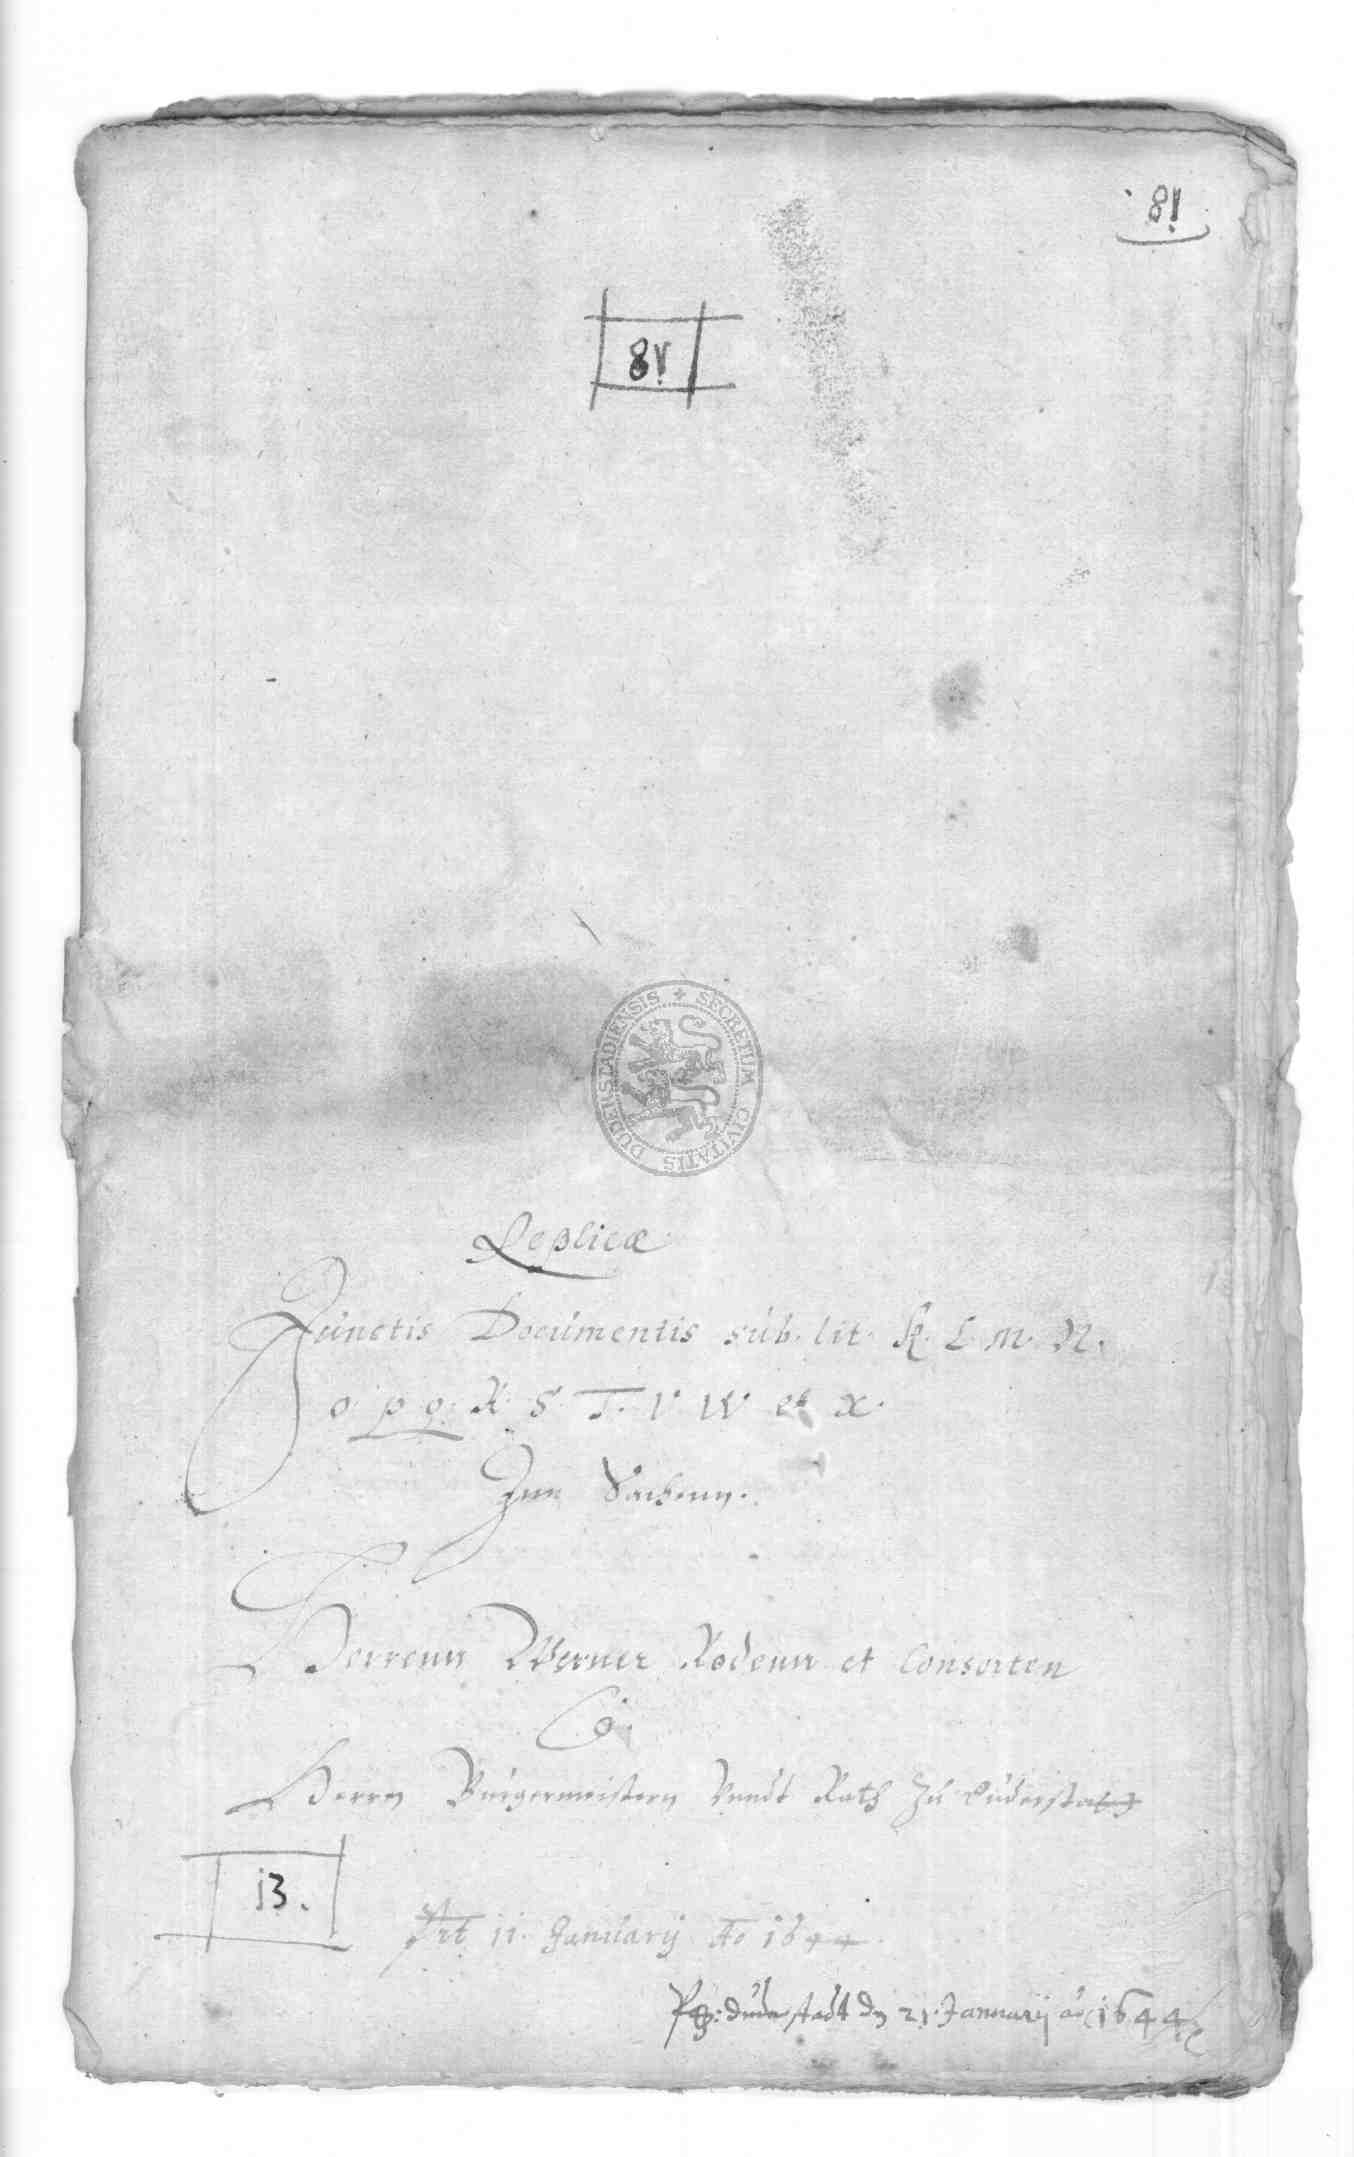 81
81
SECRETUM CIVITATIS DUDERSTADIENSIS
Replicæ
Junctis Documentis sub. lit. K. L. M. N.
O. P. Q. R. S. T. V. W. et X.
Inn Sachenn.
Herrenn Werner Rodenn et Consorten
Co.
Herrn Bürgermeistern Vnndt Rath Zu Duderstadt
13.
11. Januarij Ao 1644
Duderstadt dn 21. Januarij ao 1644